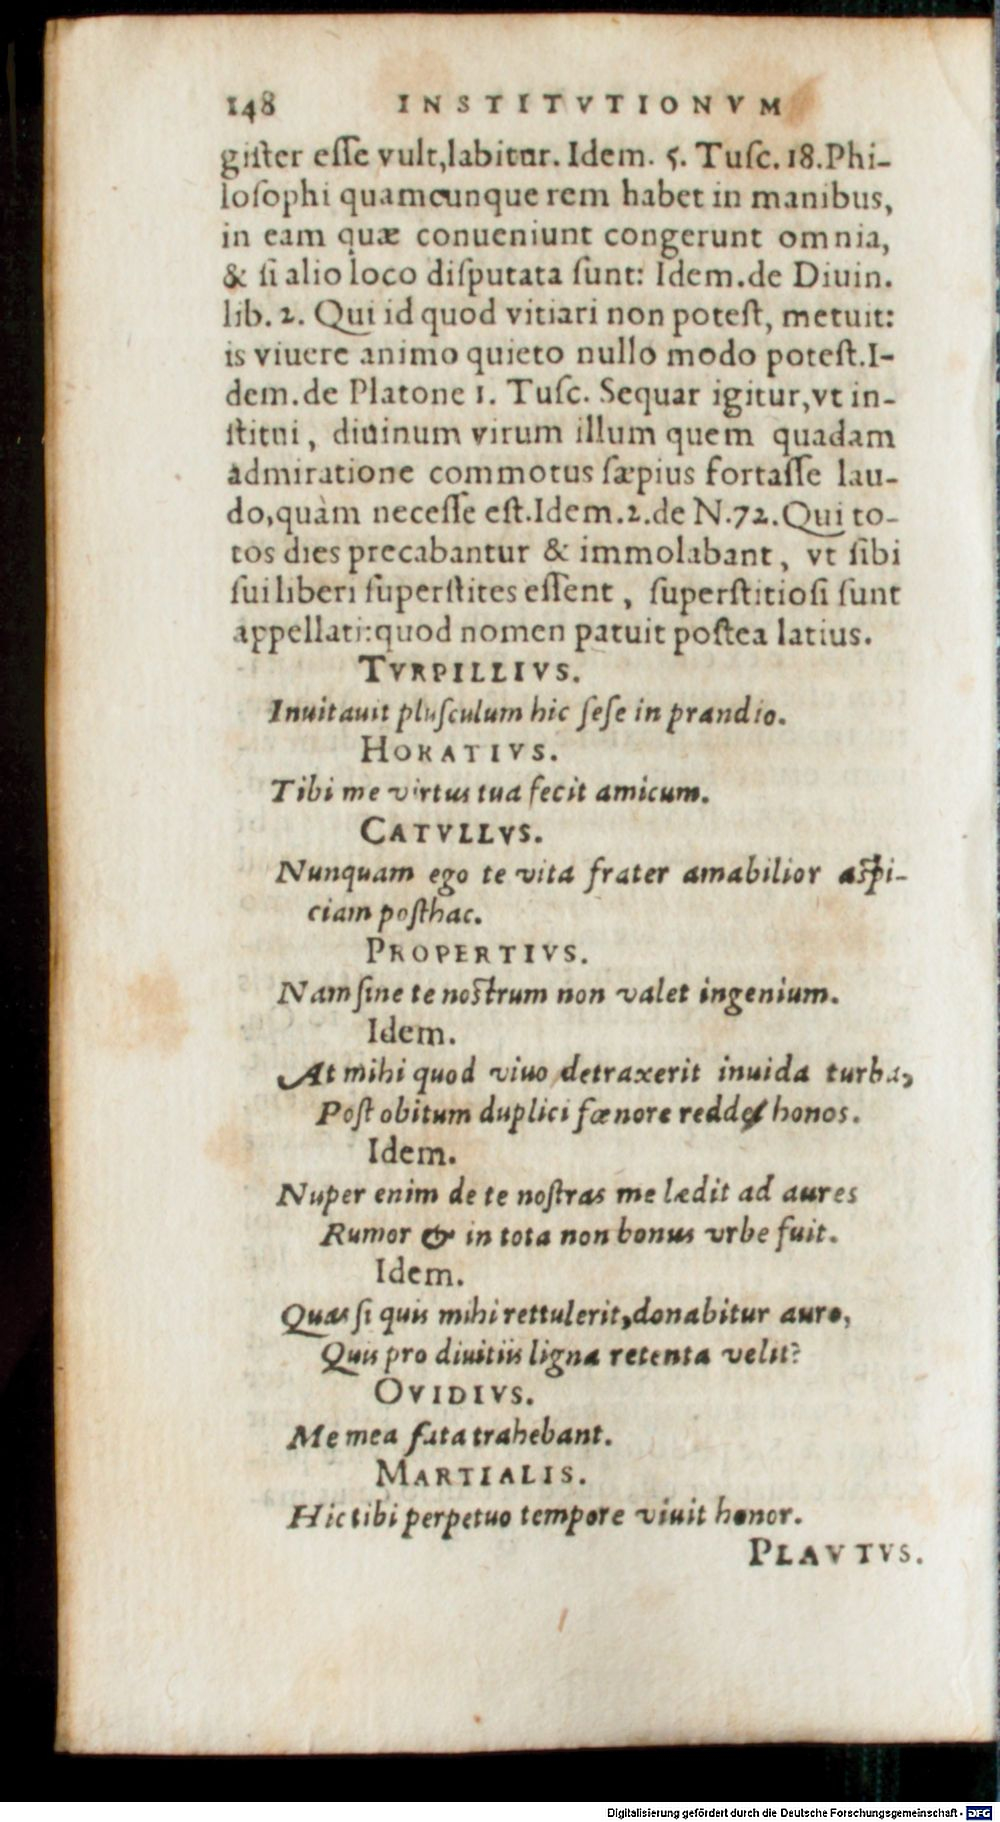 148 INSTITVTIONVM
gister esse vult,labitur. Idem. 5. Tusc. 18.Phi-
losophi quamcunque rem habet in manibus,
in eam quæ conueniunt congerunt omnia,
& si alio loco disputata sunt: Idem.de Diuin.
lib. 2. Qui id quod vitiari non potest, metuit:
is viuere animo quieto nullo modo potest.I-
dem.de Platone 1. Tusc. Sequar igitur,vt in-
stitui, diuinum virum illum quem quadam
admiratione commotus sæpius fortasse lau-
do,quàm necesse est.Idem.2.de N.72.Qui to-
tos dies precabantur & immolabant, vt sibi
sui liberi superstites essent, superstitiosi sunt
appellati:quod nomen patuit postea latius.
TVRPILLIVS.
Inuitauit plusculum hic sese in prandio.
HORATIVS.
Tibi me virtus tua fecit amicum.
CATVLLVS.
Nunquam ego te vita frater amabilior aspi-
ciam posthac.
PROPERTIVS.
Nam sine te nostrum non valet ingenium.
Idem.
At mihi quod viuo detraxerit inuida turba,
Post obitum duplici fœnore reddet honos.
Idem.
Nuper enim de te nostras me lædit ad aures
Rumor & in tota non bonus vrbe fuit.
Idem.
Quas si quis mihi rettulerit,donabitur auro,
Quis pro diuitiis ligna retenta velit?
OVIDIVS.
Me mea fata trahebant.
MARTIALIS.
Hic tibi perpetuo tempore viuit honor.
PLAVTVS.
Digitalisierung gefördert durch die Deutsche Forschungsgemeinschaft - DFG